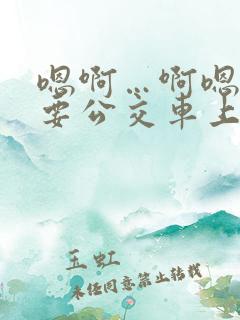 嗯啊…啊嗯
要公交车上
玉虹
未经同意禁止转载